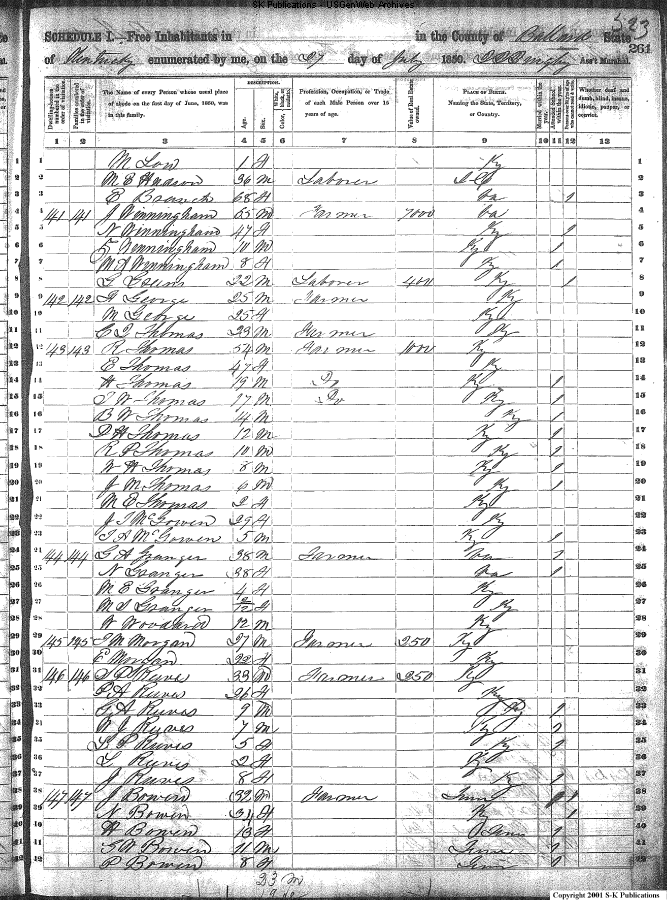 SK Publications - USGenWeb Archives
523
SCHEDULE I.—Free Inhabitants in in the County of Ballard State
261
of Kentucky enumerated by me, on the 27 day of July 1850. Ass't Marshal.
DESCRIPTION.
Dwelling-houses numbered in the order of visitation.
Families numbered in the order of visitation.
The Name of every Person whose usual place of abode on the first day of June, 1850, was in this family.
Age.
Sex.
White, black, or mulatto. Color,
Profession, Occupation, or Trade of each Male Person over 15 years of age.
Value of Real Estate owned.
PLACE OF BIRTH. Naming the State, Territory, or Country.
Married within the year.
Attended School within the year.
Whether deaf and dumb, blind, insane, idiotic, pauper, or convict.
1 2 3 4 5 6 7 8 9 10 11 12 13
1 M Low 1 f Ky 1
2 M E Hudson 36 m Laborer 2
3 E Branch 68 f Va 1 3
4 141 141 J Winningham 65 m Farmer 7000 Va 4
5 N Winningham 47 f Ky 1 5
6 Winningham 10 m Ky 1 6
7 M Winningham 8 f Ky 1 7
8 22 m Laborer 400 Ky 1 8
9 142 142 George 25 m Farmer Ky 9
10 M George 25 f Ky 10
11 Thomas 23 m Farmer Ky 11
12 143 143 R Thomas 54 m Farmer 1000 Ky 12
13 E Thomas 47 f Ky 13
14 H Thomas 19 m Do Ky 1 14
15 J W Thomas 17 m Do Ky 1 15
16 B W Thomas 14 m Ky 1 16
17 D H Thomas 12 m Ky 1 17
18 R P Thomas 10 m Ky 1 18
19 W H Thomas 8 m Ky 1 19
20 J M Thomas 6 m Ky 1 20
21 M E Thomas 2 f Ky 21
22 J I McGowen 29 f Ky 22
23 McGowen 5 m Ky 1 23
24 144 144 G A Granger 38 m Farmer Va 1 24
25 N Granger 38 f Va 1 25
26 M E Granger 4 f Ky 26
27 M S Granger /12 f Ky 27
28 W Woodard 12 m Ky 28
29 145 145 J M Morgan 27 m Farmer 250 Ky 29
30 E Morgan 22 f Ky 30
31 146 146 Reeves 33 m Farmer 250 Ky 31
32 P A Reeves 26 f Ky 32
33 G A Reeves 9 m Ky 1 33
34 W J Reeves 7 m Ky 1 34
35 S P Reeves 5 f Ky 1 35
36 L Reeves 2 f Ky 36
37 J Reeves 8 f Ky 1 37
38 147 147 J Bowen 32 m Farmer Tenn 1 38
39 N Bowen 34 f Ky 1 39
40 H Bowen 13 f Tenn 1 40
41 S A Bowen 11 m Tenn 1 41
42 P Bowen 8 f Tenn 1 42
23 m
19
Copyright 2001 S-K Publications